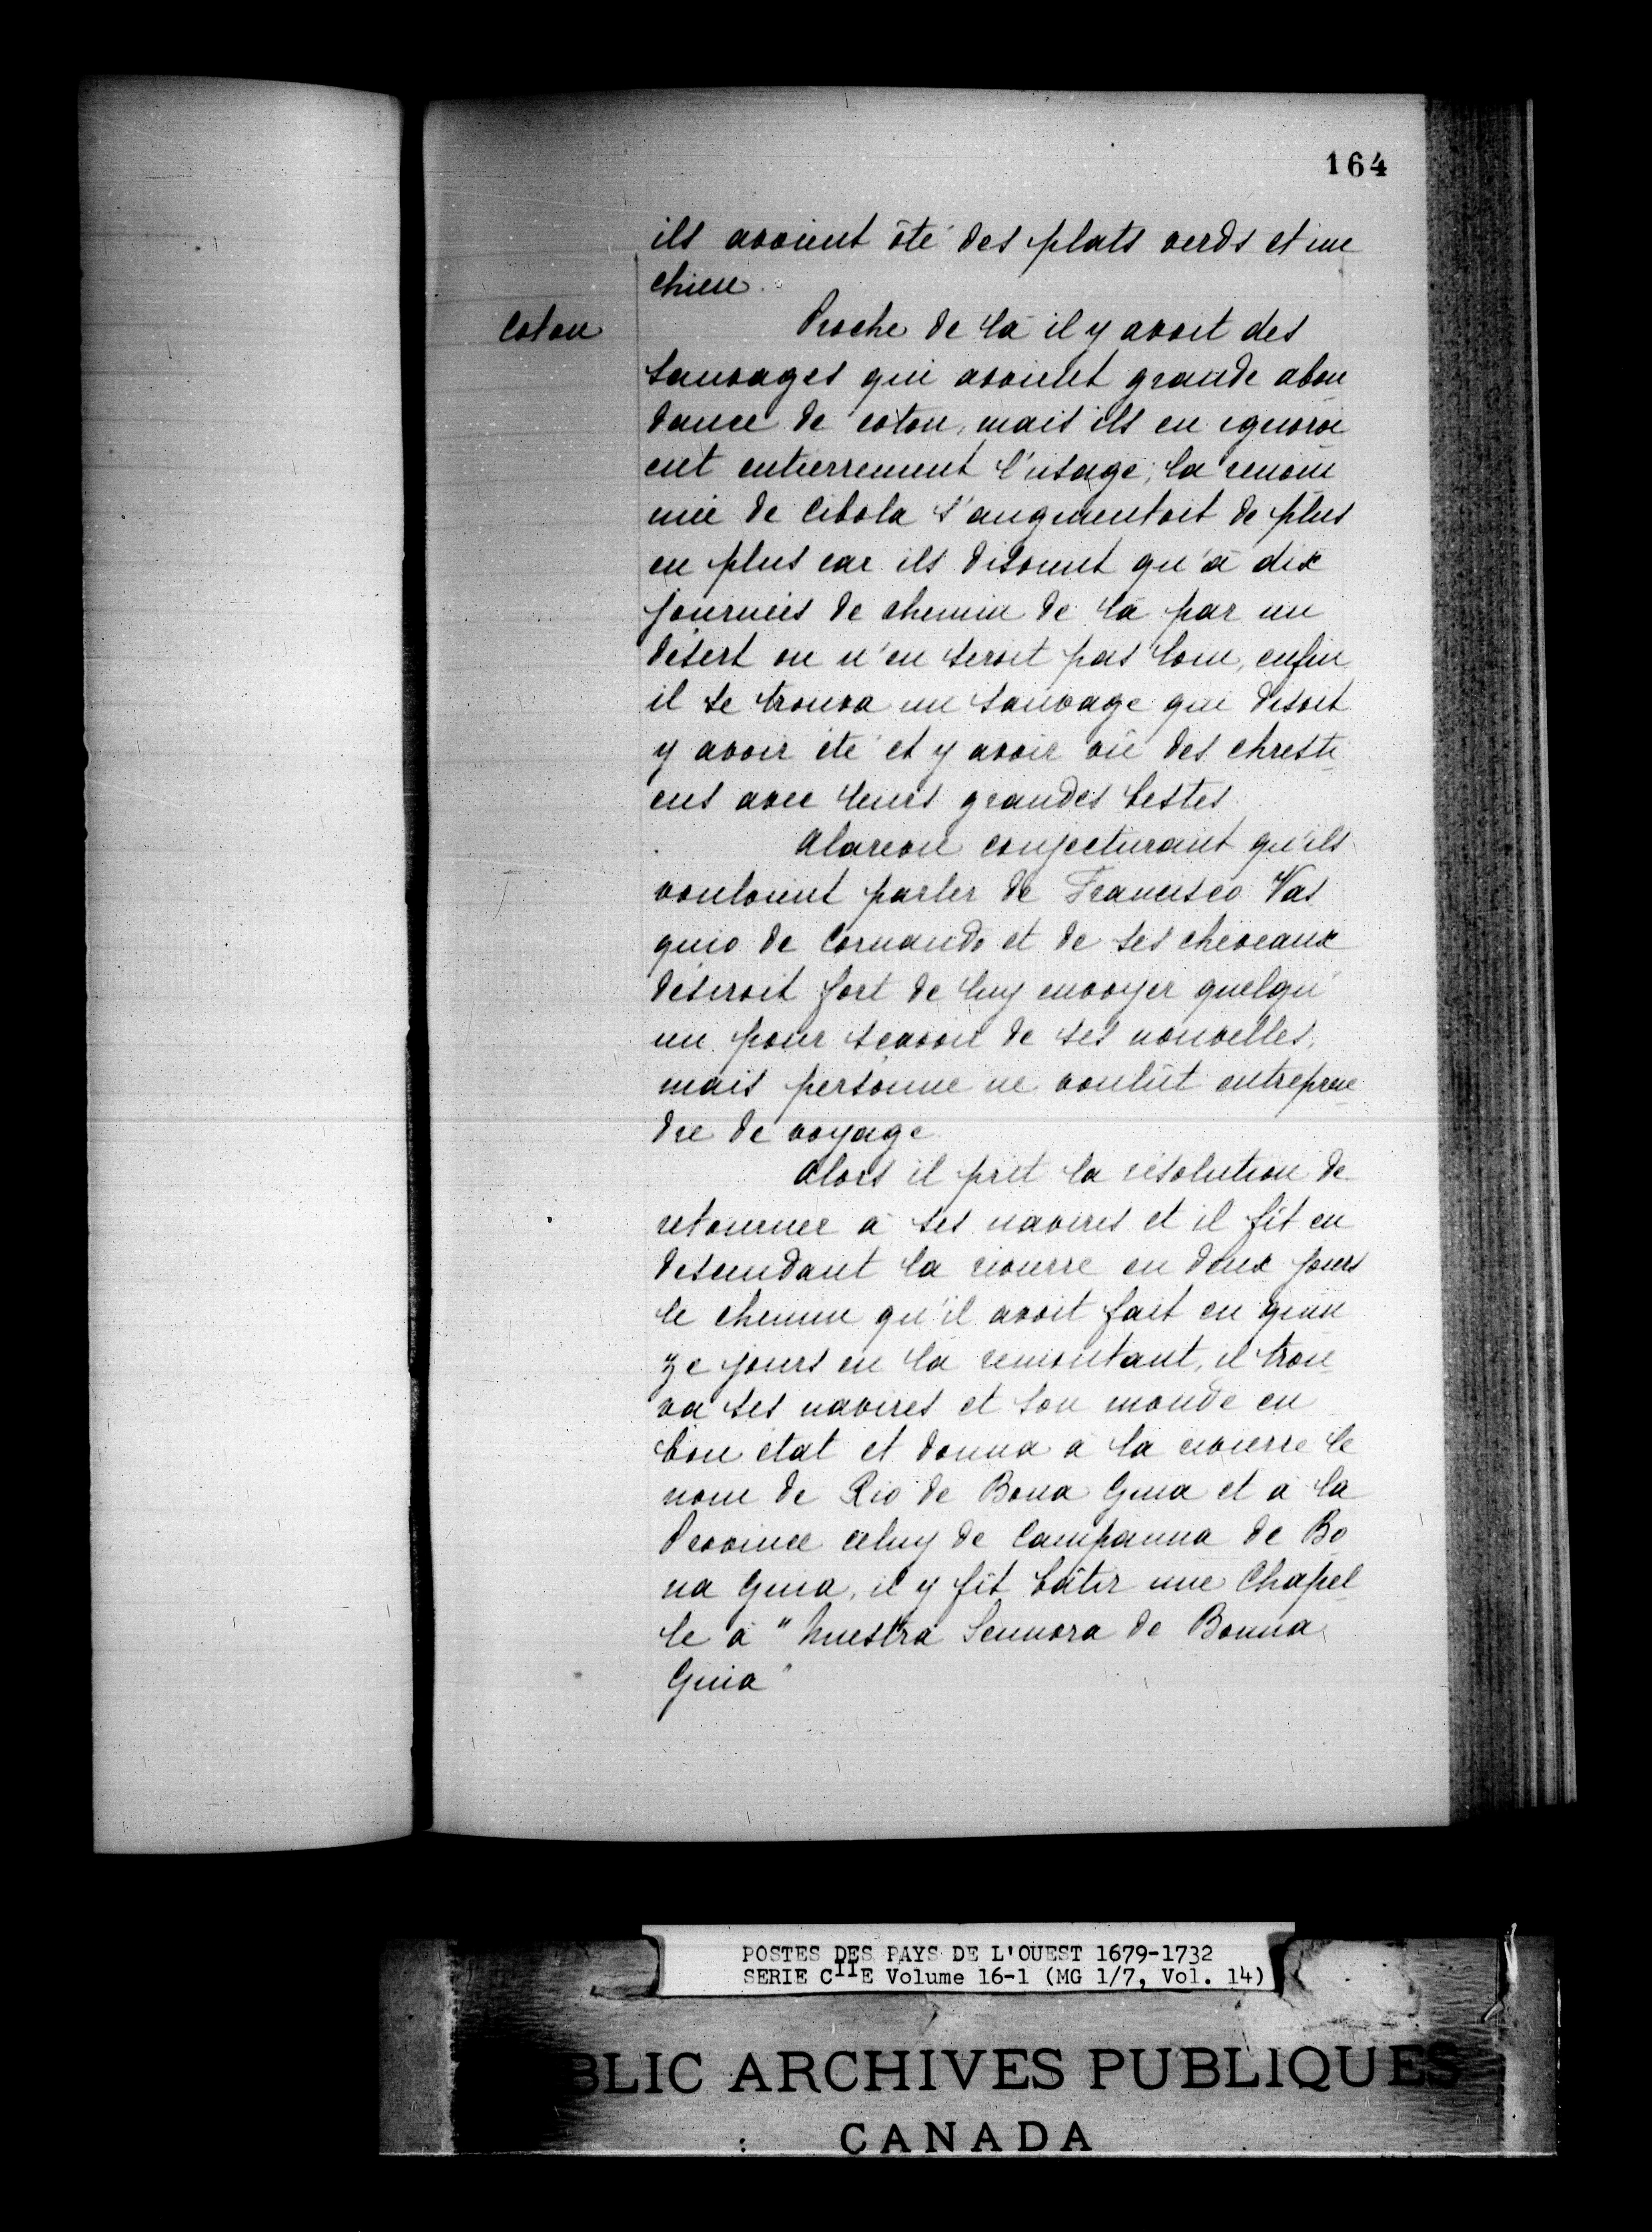 164
ils avoient ôté des plats verds et un
chien.
Coton
Proche de là il y avoit des
Sauvages qui avoient grande abon
dance de coton, mais ils en ignoroi
ent entierrement l'usage; la renom
mée de Cibola s'augmentoit de plus
en plus car ils disoient qu'à dix
journées de chemin de là par un
désert on n'en seroit pas loin, enfin
il se trouva un sauvage qui disoit
y avoir été et y avoir vû des chresti
ens avec leurs grandes bestes.
Alarcon conjecturant qu'ils
vouloient parler de Francisco Vas
quio de Cornando et de ses cheveaux
désiroit fort de luy envoyer quelqu'
un pour scavoir de ses nouvelles,
mais personne ne voulût entrepren
dre de voyage.
Alors il prit la résolution de
retourner à ses navires et il fit en
descendant la rivierre en deux jours
le chemin qu'il avoit fait en quin
ze jours en la remontant, il trou
va ses navires et son monde en
bon état et donna à la rivierre le
nom de Rio de Bona Guia et à la
Province celuy de Campanna de Bo
na Guia, il y fit bâtir une Chapel
le à "Nuestra Sennora de Bonna
Guia"
POSTES DES PAYS DE L'OUEST 1679-1732
SERIE CIIE Volume 16-1 (MG 1/7, Vol. 14)
BLIC ARCHIVES PUBLIQUES
CANADA